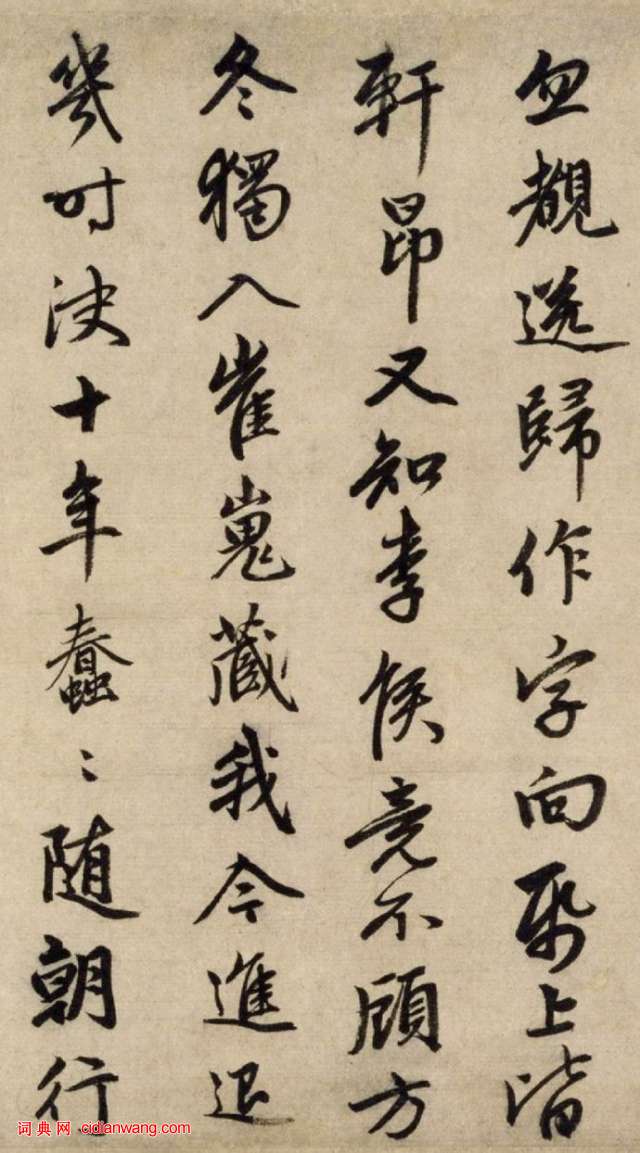 忽覩送歸作字向帋上皆
軒昂又知李侯竟不顧方
冬獨入崔嵬藏我今進退
幾时決十年蠢〻随朝行
词典网 cidianwang.com